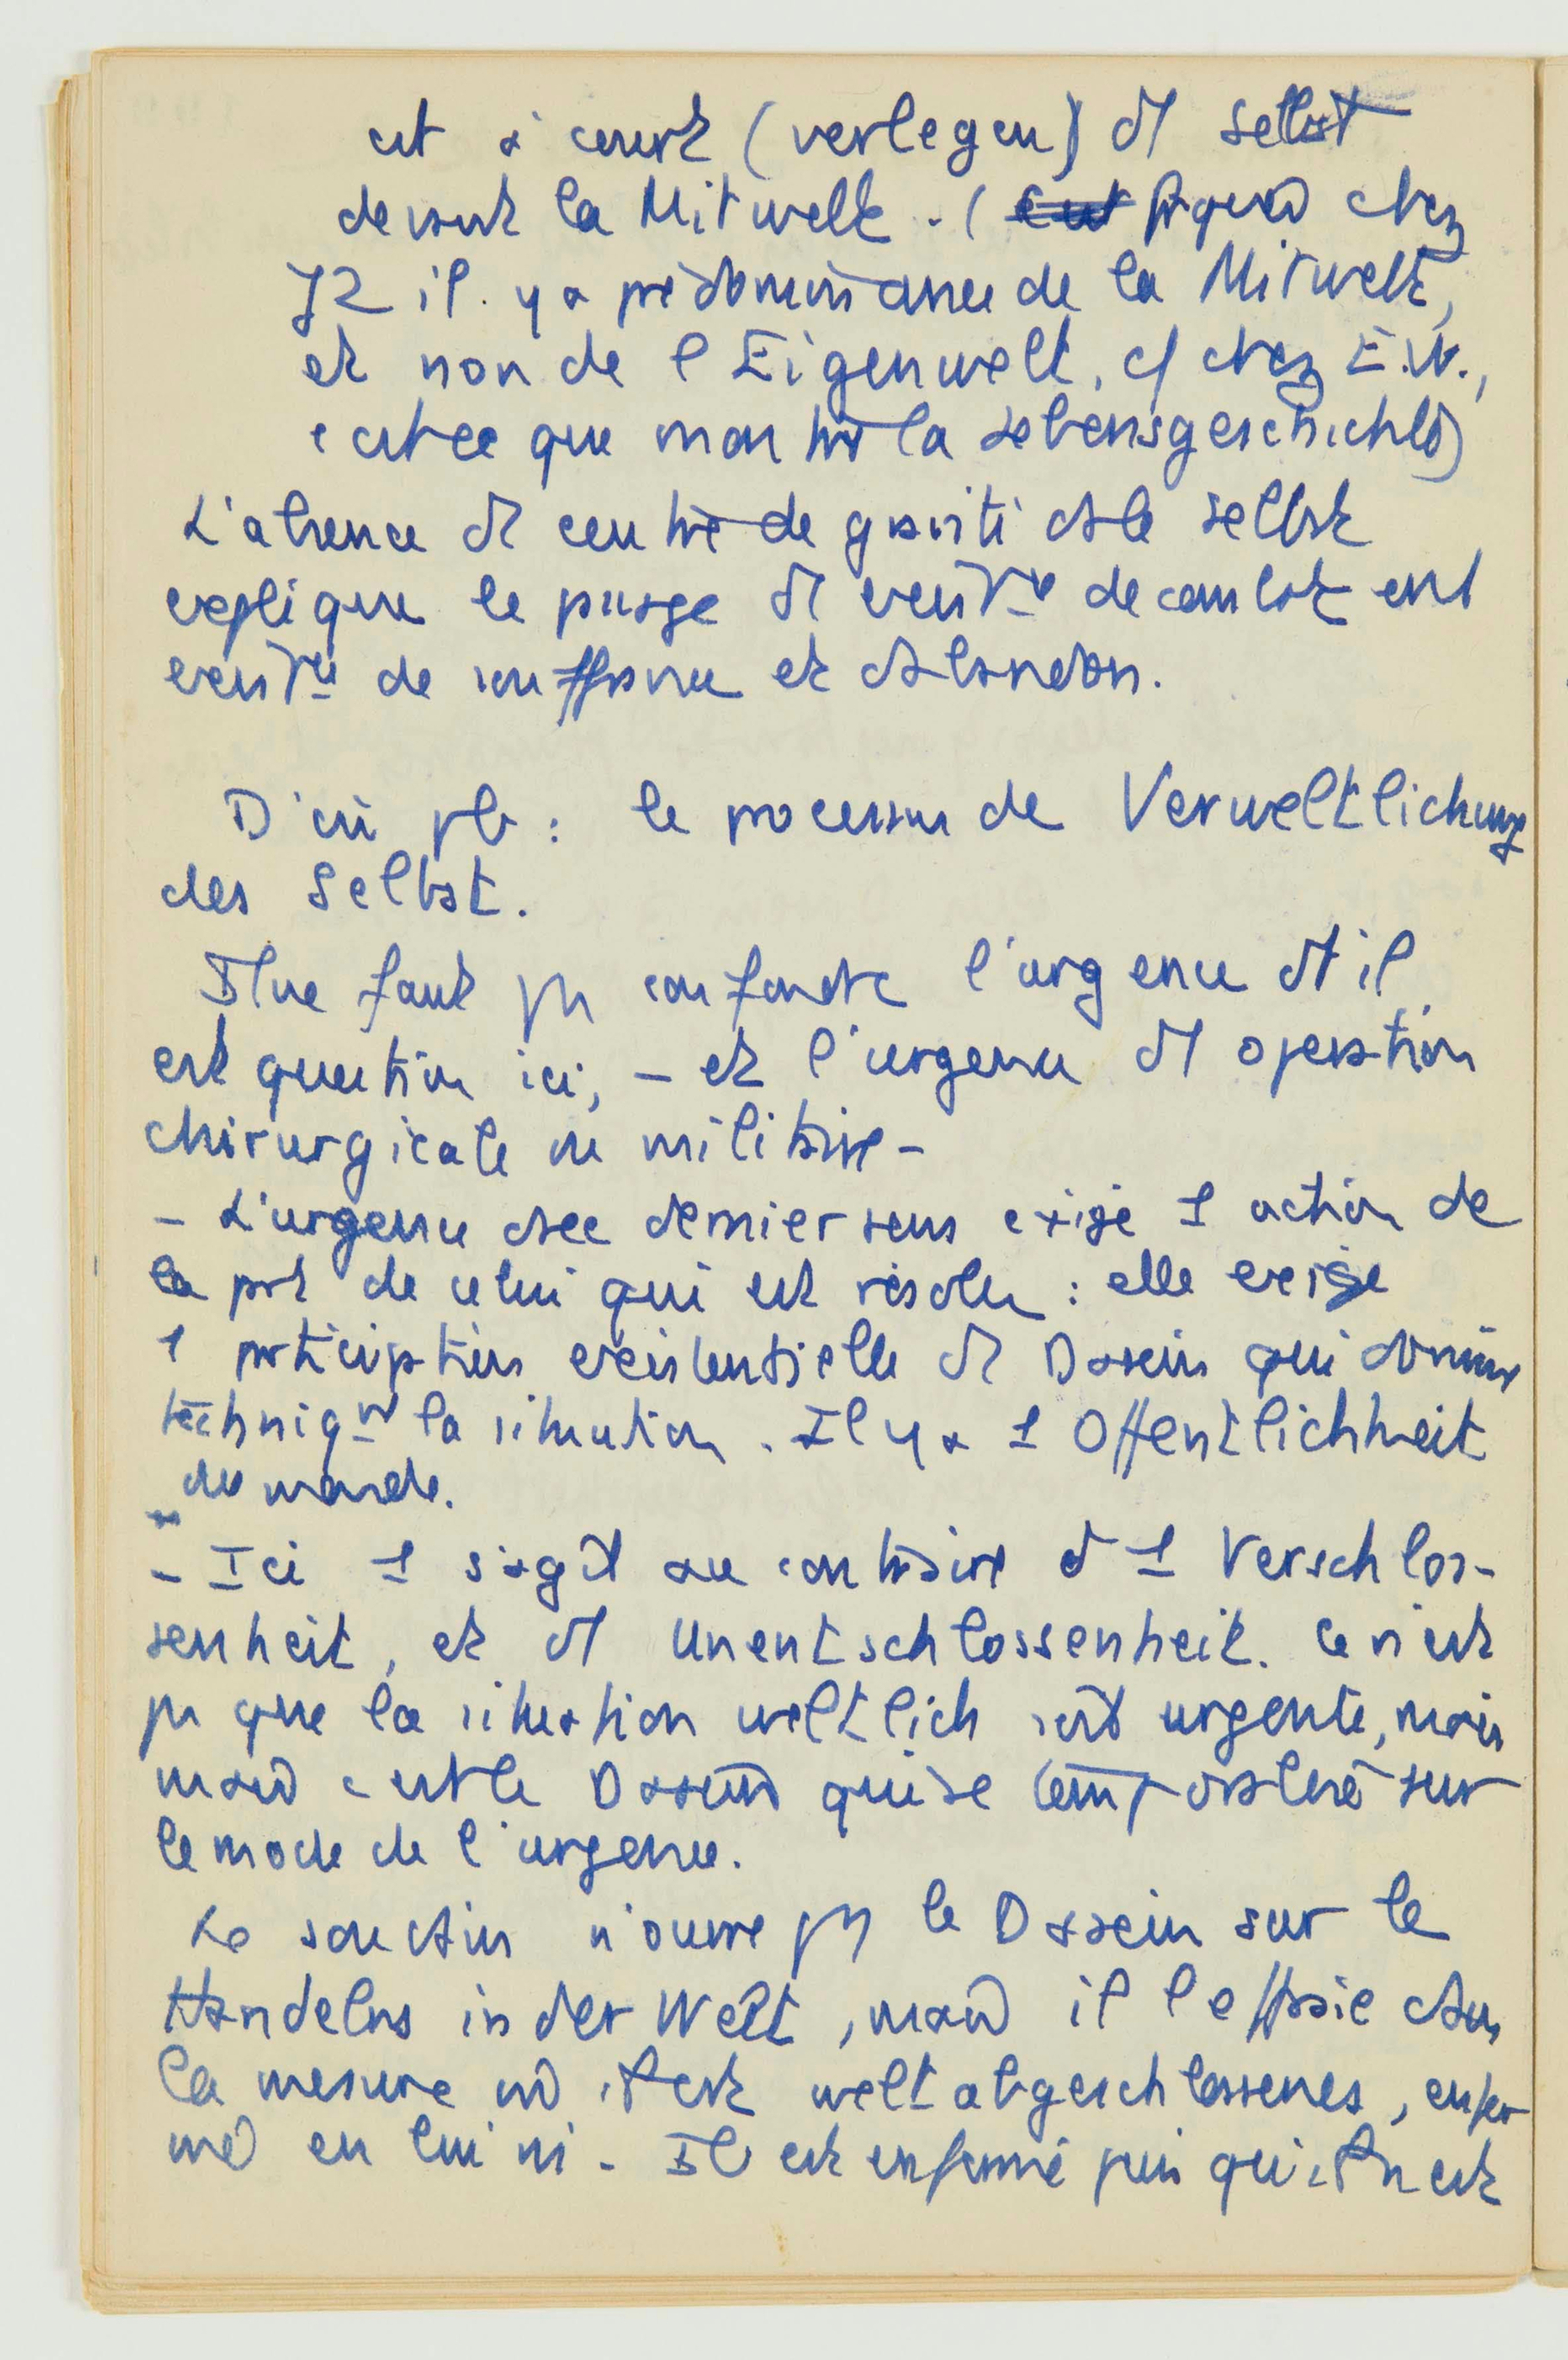 est à court (verlegen) d1 Selbst
devant la Mitwelt. ( chez
JZ il y a prédominance de la Mitwelt,
et non de l'Eigenwelt, cf chez E.W.,
c'est ce que montre la Lebensgeschichte)
L'absence de centre de gravité ds le Selbst
explique le passage de de combat en 1
de souffrance et d'abandon.
D'où pb : le processus de Verweltlichung
des Selbst.
Il ne faut pas confondre l'urgence dt il
est question ici, – et l'urgence d1 opération
chirurgicale ou militaire –
– L'urgence ds ce dernier sens exige 1 action de
la part de celui qui est résolu : elle exige
1 participation existentielle de Dasein qui domine
techniqt la situation. Il y a 1 Offentlichkeit
du monde.
– Ici il s'agit au contraire d'1 Verschlos-
senheit, et d1 Unentschlossenheit. Ce n'est
pas que la situation weltlich soit urgente, mais
c'est le Dasein qui se sur
le mode de l'urgence.
Le soutien n'ouvre pas le Dasein sur le
Handelns in der Welt, il l'effraie dans
la mesure où il est weltabgeschlossenes, enfer
mé en lui m. Il est enfermé puisqu'il n'est